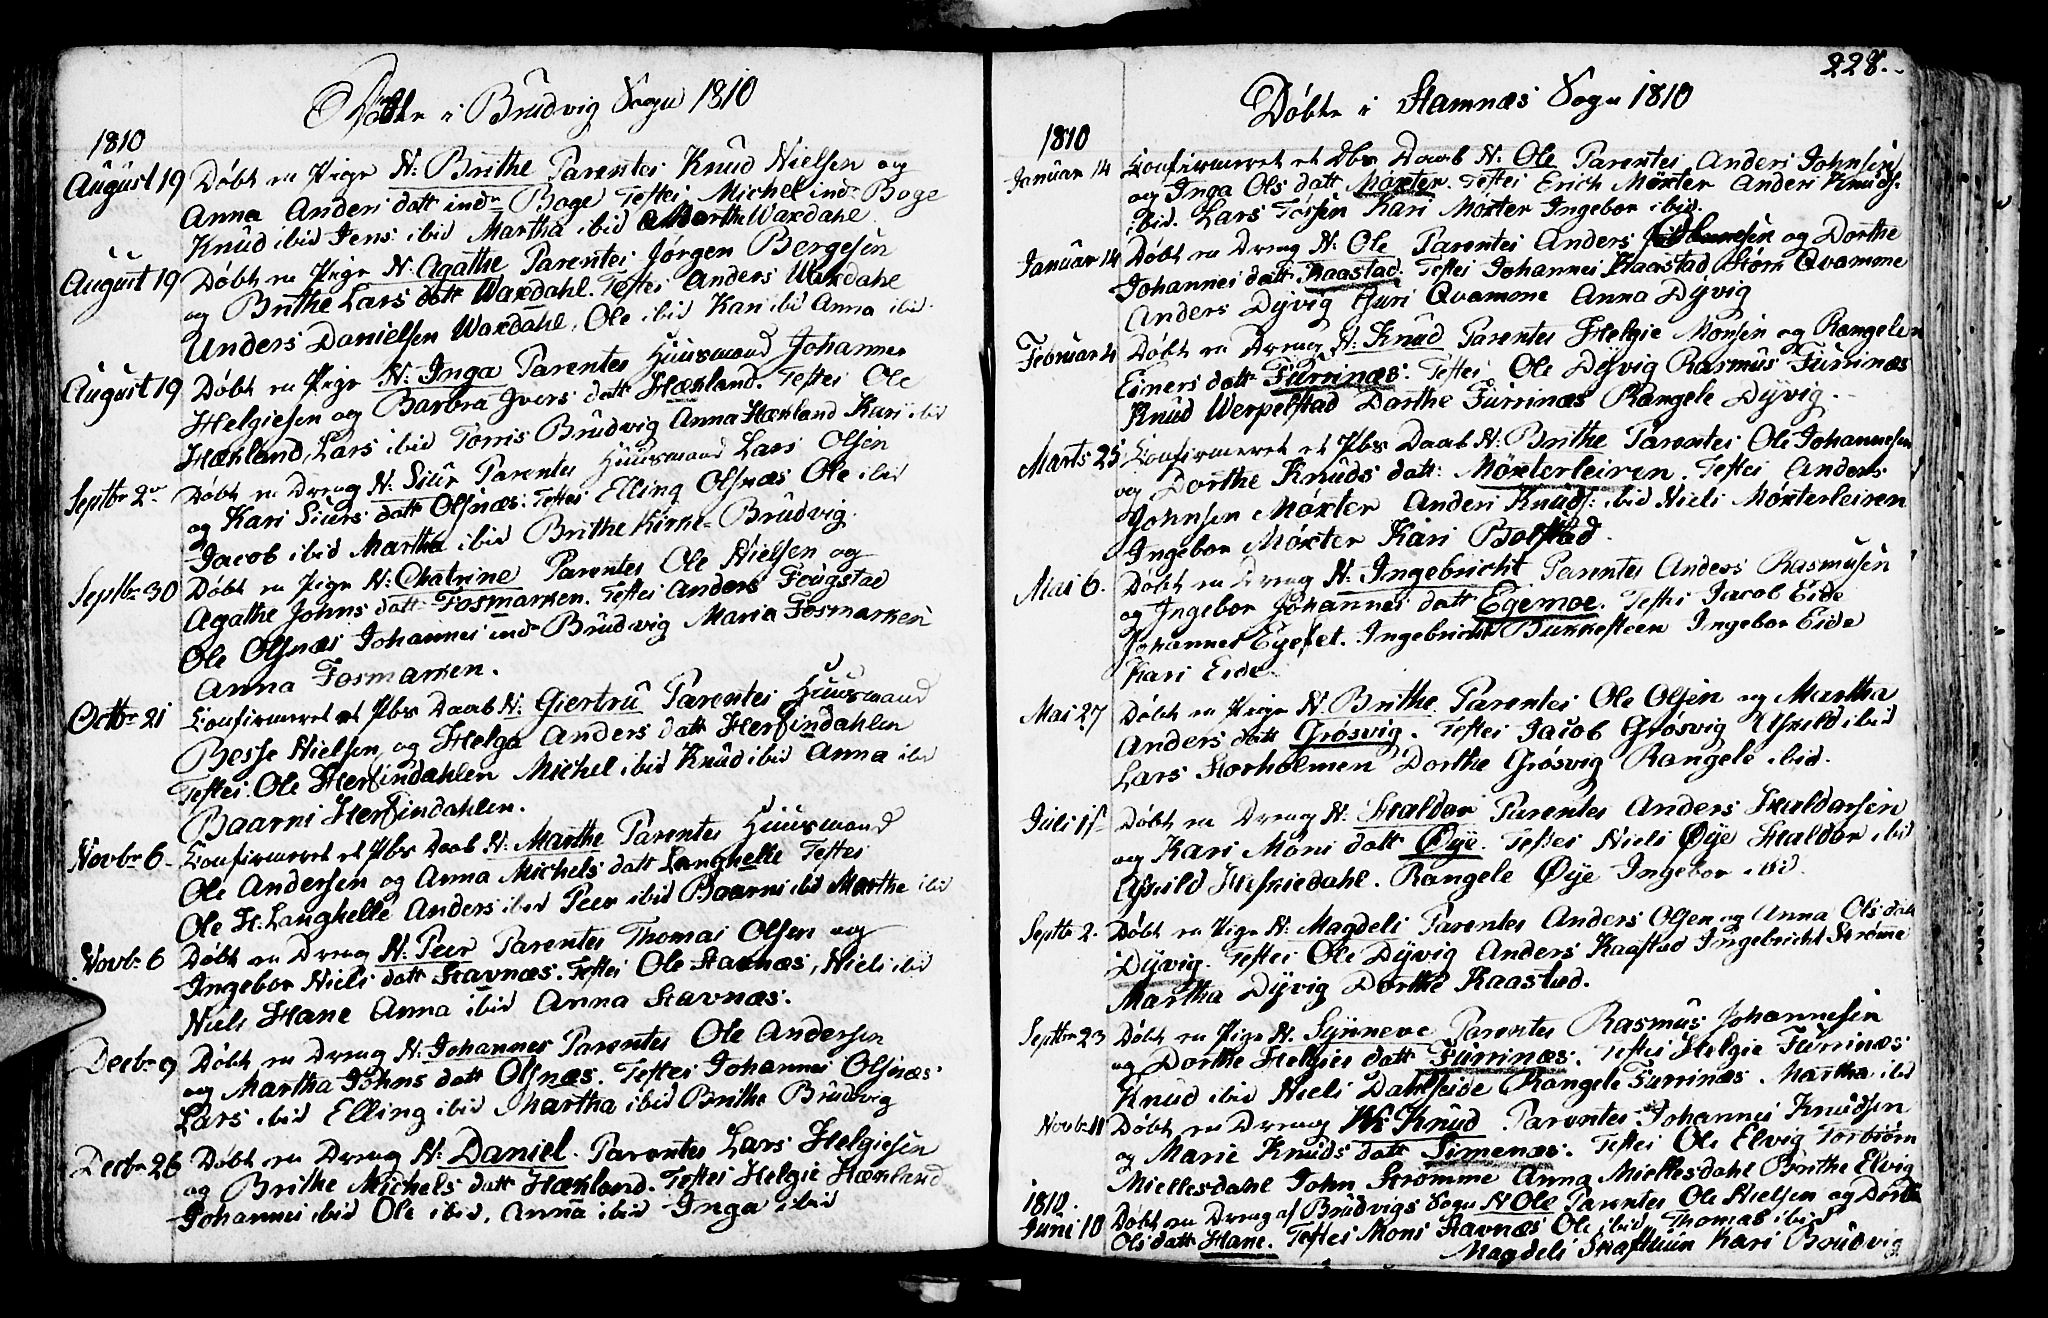 Døbte i Brudvig Sogn 1810
1810
August 19 Døbt en Pige N: Brithe Parentes Knud Nielsen og
Anna Anders datt indr Boge Testes Michel indr Boge
Knud ibid Jens ibid Martha ibid Marthe Waxdahl
August 19 Døbt en Pige N: Agathe Parentes Jørgen Bergesen
og Brithe Lars datt Waxdahl. Testes Anders Waxdahl
Anders Danielsen Waxdahl, Ole ibid Kari ibid Anna ibid
August 19 Døbt en Pige N: Inga Parentes Huusmand Johannes
Helgiesen og Barbra Ivers datt Hækland. Testes Ole
Hækland, Lars ibid Torris Brudvig Anna Hækland Kari ibid
Septbr 2 Døbt en Dreng N: Siur Parentes Huusmand Lars Olsen
og Kari Siurs datt Olsnæs: Testes Elling Olsnæs Ole ibid
Jacob ibid Martha ibid Brithe Brudvig.
Septbr 30 Døbt en Pige N: Chatrine Parentes Ole Nielsen og
Agathe Johns datt Fosmarken. Testes Anders Fougstad
Ole Olsnæs Johannes indr Brudvig Maria Fosmarken
Anna Fosmarken.
Octbr 21 Confirmeret et Pbs Daab N: Giertru Parentes Huusmand
Besse Nielsen og Helga Anders datt Herfindahlen
Testes. Ole Herfindahlen Michel ibid Knud ibid Anna ibid
Baarni Herfindahlen.
Novbr 6 Confirmeret et Pbs Daab N: Marthe Parentes Huusmand
Ole Andersen og Anna Michels datt Langhelle Testes
Ole H. Langhelle Anders ibid Peer ibid Baarni ibid Marthe ibid
Novbr 6 Døbt en Dreng N: Peer Parentes Thomas Olsen og
Ingebor Niels datt Stavnæs. Testes Ole Stavnæs, Niels ibid
Niels Hane Anna ibid Anna Stavnæs.
Decbr 9 Døbt en Dreng N: Johannes Parentes Ole Andersen
og Martha Johns datt Olsnæs. Testes Johannes Olsnæs
Lars ibid Elling ibid Martha ibid Brithe Brudvig
Decbr 26 Døbt en Dreng N: Daniel. Parentes Lars Helgiesen
og Brithe Michels datt Hækland. Testes Helgie Hækland
Johannes ibid Ole ibid, Anna ibid Inga ibid
228.
Døbte i Stamnæs Sogn 1810
1810
Januar 14 Confirmeret et Pbs Daab N: Ole Parentes Anders Johnsen
og Inga Ols datt Møxter. Testes Erich Møxter Anders Knuds:
ibid. Lars Kari Moxter Ingebor ibid.
Januar 14 Døbt en Dreng N: Ole Parentes Anders og Dorthe
Johannes datt Kaastad. Testes Johannes Kaastad Qvamme
Anders Dyvig Guri Qvamme Anna Dyvig
Februar 4 Døbt en Dreng N: Knud Parentes Helgie Monsen og Rangele
Einers datt Furrinæs. Testes Ole Dyvig Rasmus Furrinæs
Knud Werpelstad Dorthe Furrinæs Rangele Dyvig.
Marts 25 Confirmeret et Pbs Daab N: Brithe Parentes Ole Johannesen
og Dorthe Knuds datt: Møxterleiren. Testes Anders
Johnsen Møxter Anders Knuds: ibid Niels Møxterleiren
Ingebor Møxter Kari Bolstad.
Mai 6. Døbt en Dreng N: Ingebricht Parentes Anders Rasmusen
og Ingebor Johannes datt Egemoe. Testes Jacob Eide
Johannes Ingebricht Bukkesteen Ingebor Eide
Kari Eide.
Mai 27 Døbt en Pige N: Brithe Parentes Ole Olsen og Martha
Anders datt Grøsvig. Testes Jacob Grøsvig Asseld ibid
Lars Storholmen Dorthe Grøsvig Rangele ibid.
Juli 1 Døbt en Dreng N: Haldor Parentes Anders Haldorsen
og Kari Mons datt Øye. Testes Niels Øye Haldor ibid
Rangele Øye Ingebor ibid.
Septbr 2. Døbt en Pige N: Magdeli Parentes Anders Olsen og Anna Ols datt
Dyvig. Testes Ole Dyvig Anders Kaastad Ingebricht Strømme
Martha Dyvig Dorthe Kaastad.
Septbr 23 Døbt en Pige N: Synneve Parentes Rasmus Johannesen
og Dorthe Helgies datt Furrinæs. Testes Helgie Furrinæs
Knud ibid Niels Dahlseide Rangele Furrinæs Martha ibid
Novbr 11 Døbt en Dreng N: Knud Parentes Johannes Knudsen
og Marie Knuds datt Simenæs. Testes Ole Elvig Torbiørn
Miellesdahl John Strømme Anna Miellesdahl Brithe Elvig
1810.
Juni 10 Døbt en Dreng af Brudvigs Sogn N Ole Parentes Ole Nielsen og Dorthe
Ols datt Hane. Testes Mons Stavnæs Ole ibid Thomas ibid
Magdeli Skaftuun Kari Brudvig